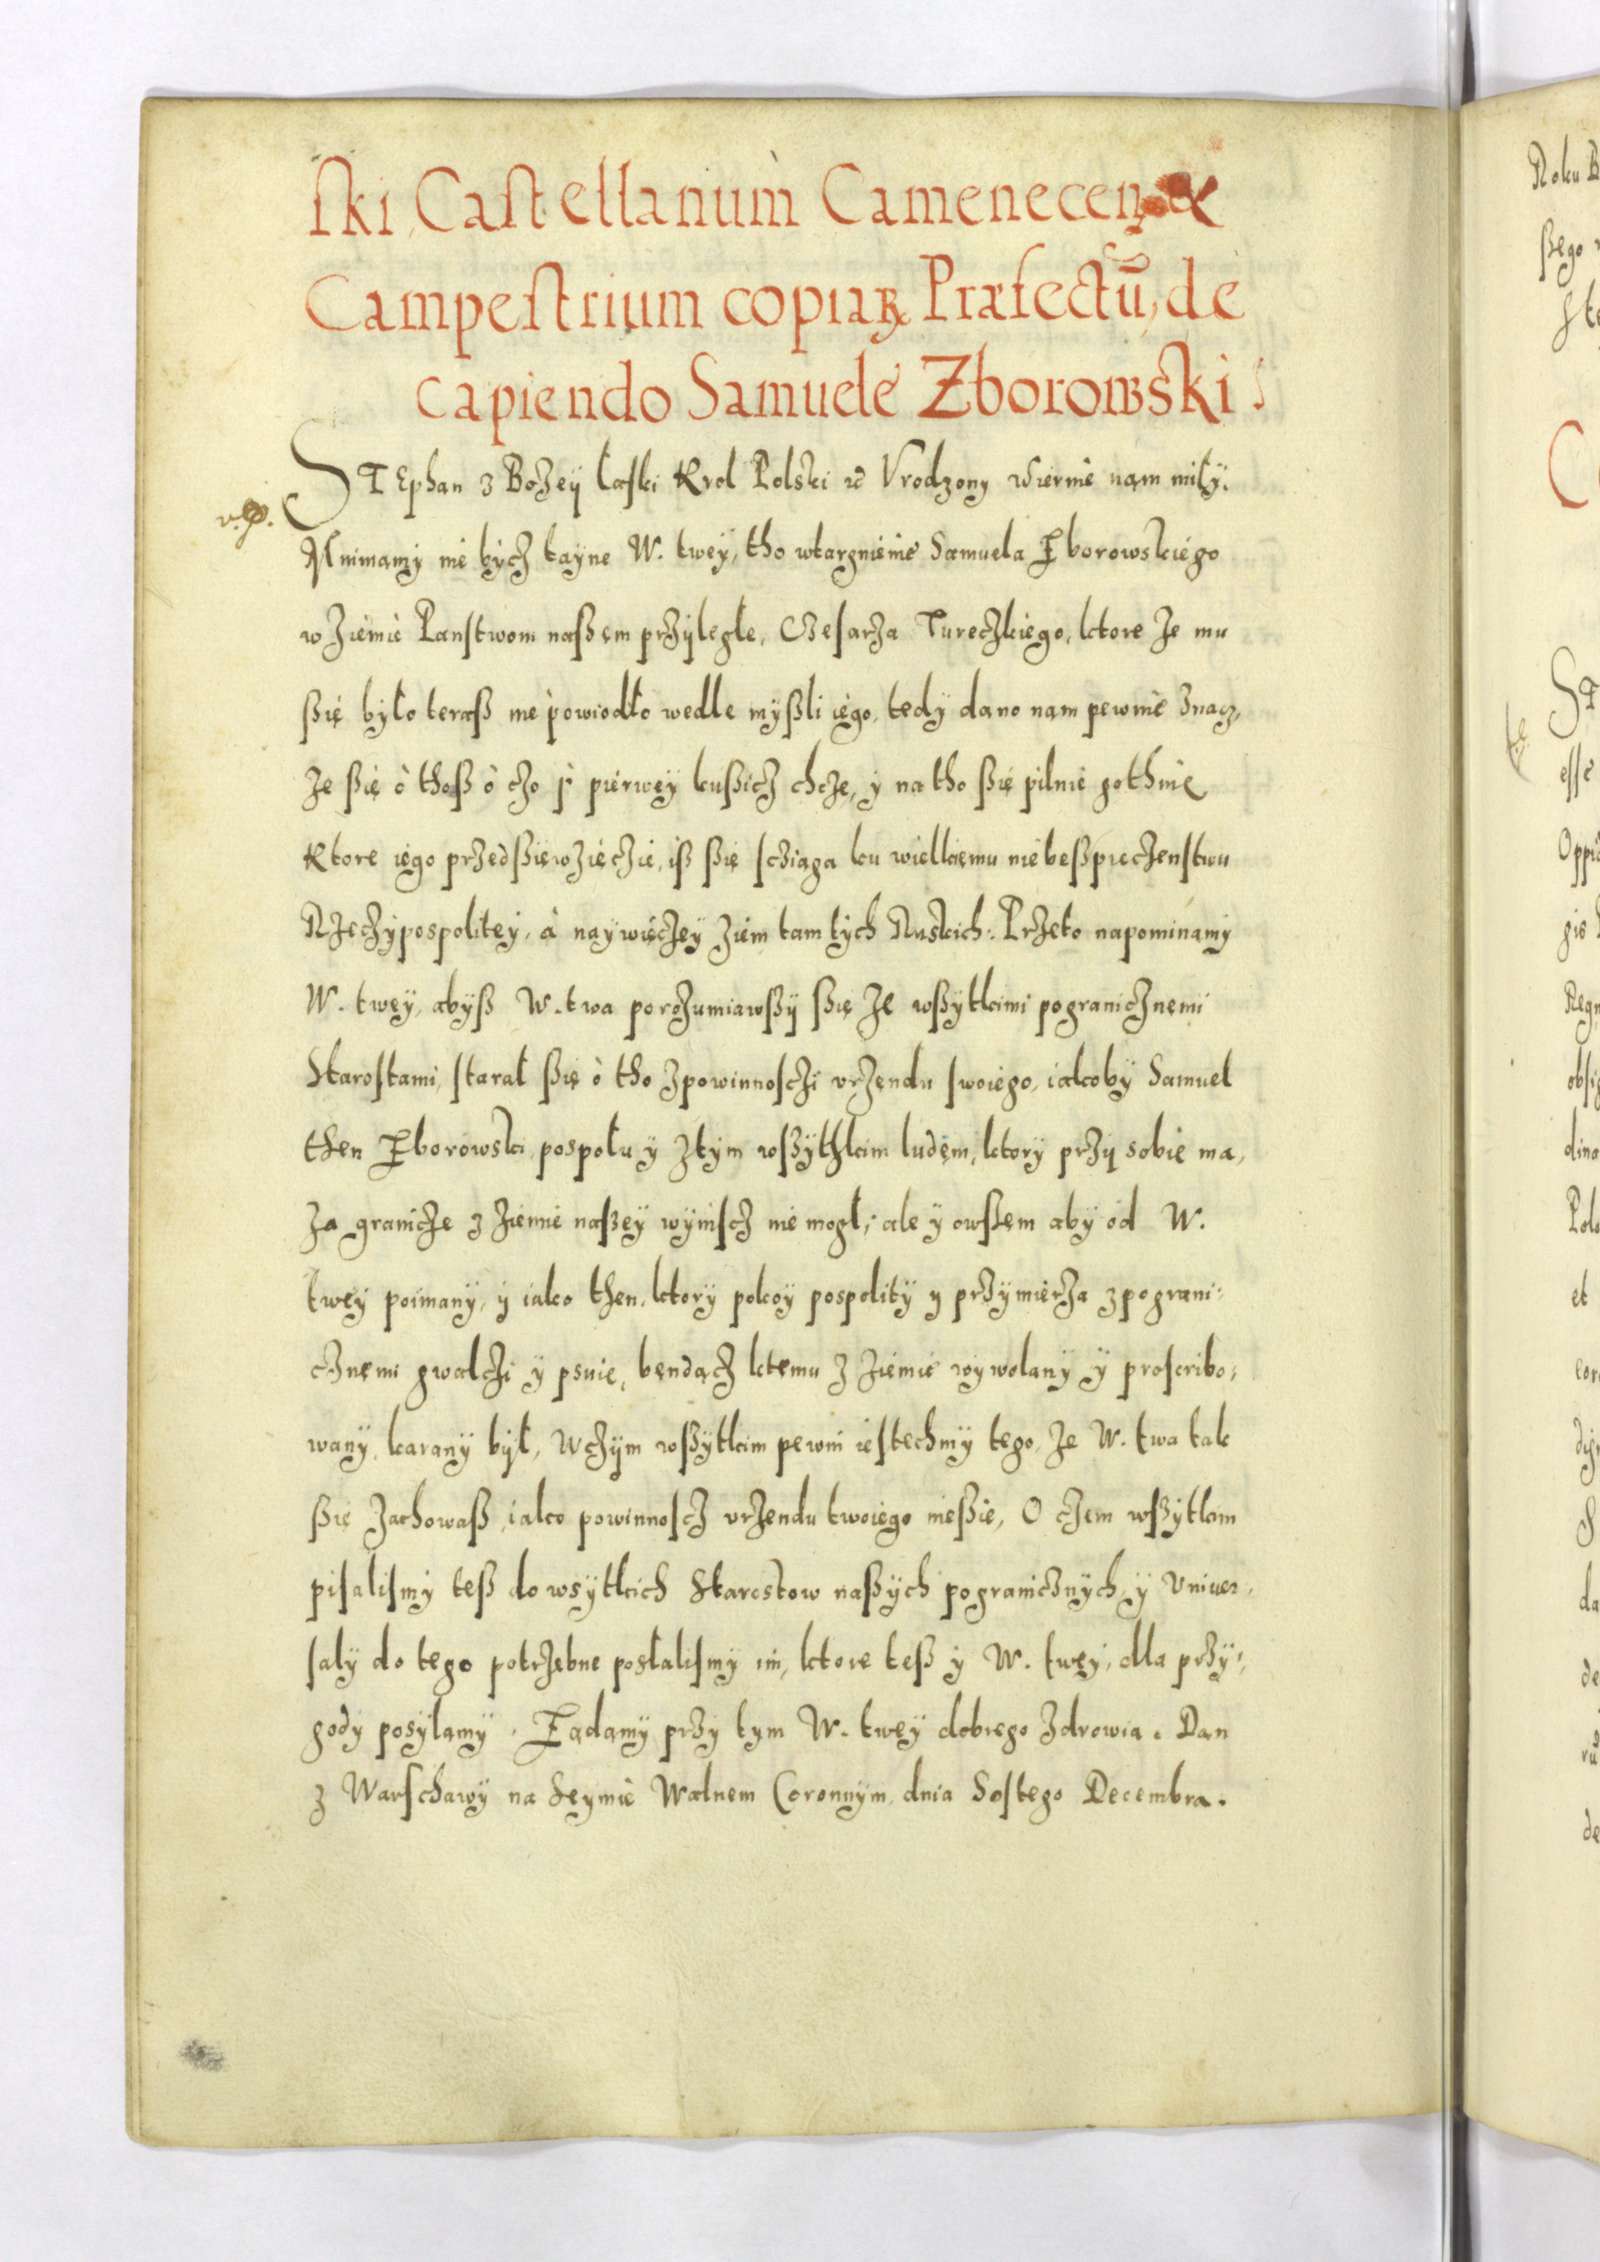 ſki, Caſtellanum Camenecen &
Campeſtrium copiaꝝ Præfectū, de
capiendo Samuele Zborowski
STEphan z Bożey łaſki Krol Polski ꝛc Vrodzony wiernie nam miły.
Mnimamy nie bycz tayne W. twey, tho wtargnienie Samuela Zborowskiego
w ziemie Panstwom naßem przyległe, Czeſarza Tureczkiego, ktore ze mu
ßię było teraß nie powiodło wedle myßli iego, tedy dano nam pewnie znacz,
ze ßię o thoß o czo y pierwey kußicz chcze, y na tho ßię pilnie gothuie
Ktore iego przedßięwzięczie, iß ßię ſcziąga ku wielkiemu niebeßpieczenſtwu
Rzeczypospolitey, à naywięczey ziem tamtych Ruskich. Przeto napominamy
W. twey, abyß W. twa porozumiawßy ßię ze wßytkimi pogranicznemi
Staroſtami, ſtarał ßię o tho zpowinnoſczi vrzendu ſwoiego, iakoby Samuel
then Zborowski, pospołu y ztym wßythkim ludem, ktory przy sobie ma,
za granicze z ziemie naßey wyniſcz nie mogł, ale y owßem aby od W.
twey poimany, y iako then, ktory pokoy pospolity y przymierza zpograni-
cznemi gwałczi y psuie, bendącz ktemu z ziemie wywolany y proſcribo-
wany, karany był, Wczym wßytkim pewni ieſtechmy tego, ze W. twa tak
ßię zachowaß, iako powinnoſcz vrzendu twoiego nießie, O czem wßytkim
piſaliſmy teß do wsytkich Starostow naßych pogranicznych, y Vniuer-
ſaly do tego potrzebne poſłaliſmy im, ktore teß y W. twey, dla przy-
gody posyłamy. Ządamy przy tym W. twey dobrego zdrowia. Dan
z Warſchawy na Seymie Walnem Coronnym dnia Soſtego Decembra.